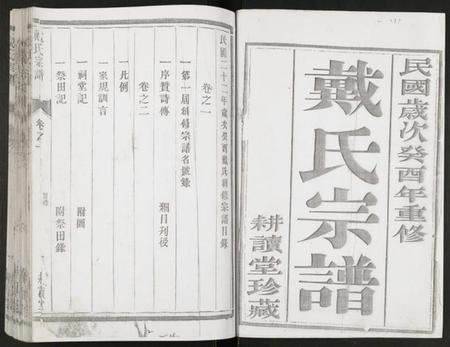 民國歲次癸酉年重修
戴氏宗譜
耕讀堂珍藏
民國二十二年歲次癸酉戴氏續修宗譜目錄
卷之一
一第一屆創修宗譜名諱錄
一序贊詩傳　類目列後
卷之二
一凡例
一家規訓言
一祠堂記　附圖
一祭田記　附祭田錄
戴氏宗譜
卷之一
目錄